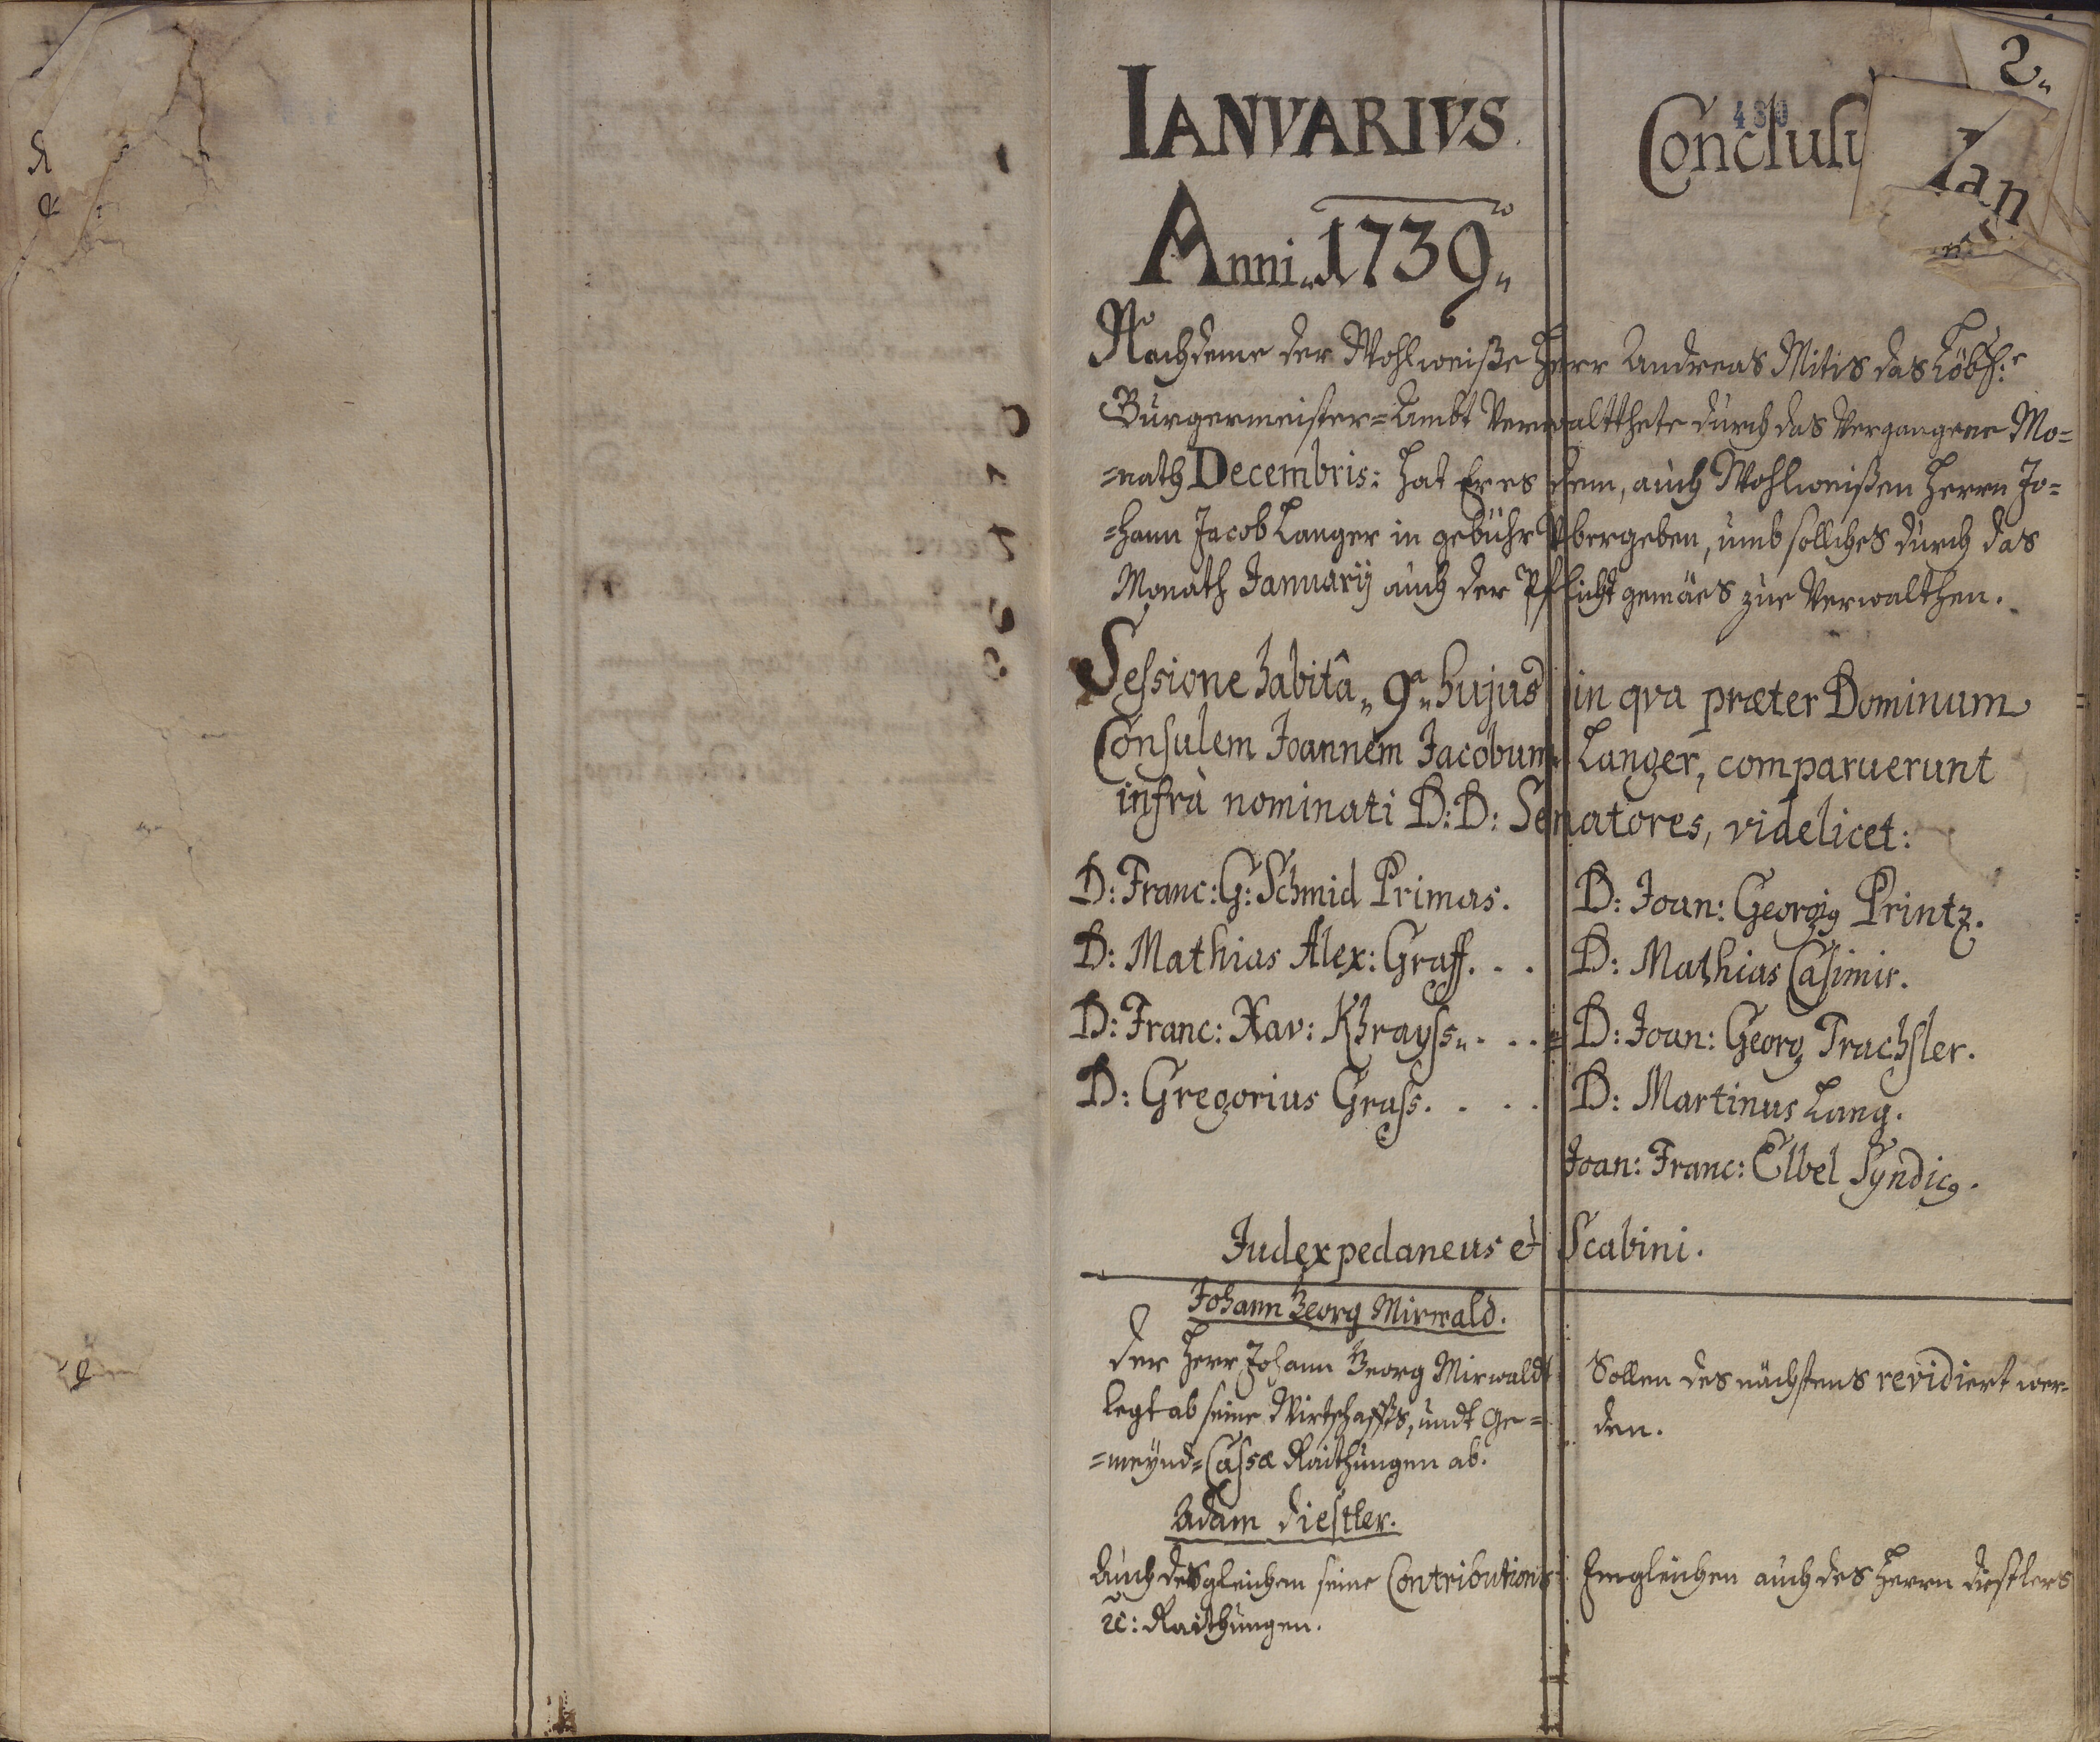 2.
IANVARIVS.
430
Conclusu
Jan
Anni 1739
Nachdeme der Wohlweiße Herr Andreas Mitis das Löbl:e
Burgermeister=Ambt Verwaltthete durch das Vergangene Mo=
=nath Decembris: hat Er es dem, auch Wohlweißen Herrn Jo=
=hann Jacob Langer in gebühr Ybergeben, umb solliches durch das
Monath Januarij auch der Pflicht gemäes zue Verwalthen.
Sessione habitâ 9a hujus in qva præter Dominum
Consulem Joannem Jacobum Langer, comparuerunt
infrà nominati D:D: Senatores, videlicet:
D: Franc: G: Schmid Primas. D: Joan: Georgig Printz.
D: Mathias Alex: Graff. . . D: Mathias Casimir.
D: Franc: Xav: Khrayss. . . D: Joan: Georg Trachsler.
D: Gregorius Grass. . . . D: Martinus Lang.
Joan: Franc: Elbel Syndicg.
Judex pedaneus et Scabini.
Johann Georg Mirwald.
der Herr Johann Georg Mirwaldt
legt ab seine Wirtschaffts, undt Ge=
=meynd=Cassæ Raithungen ab.
Sollen des nächstens revidiert wer=
den.
Adam Diestler.
Auch desgleichen seine Contributions
&c: Raithungen.
Imgleichen auch des Herrn Distlers